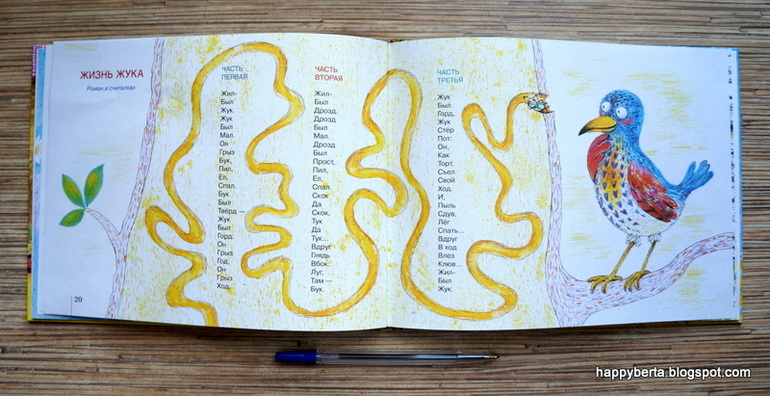 ЖИЗНЬ ЖУКА
Роман в считалках
ЧАСТЬ
ПЕРВАЯ
Жил-
Был
Жук.
Жук
Был
Мал.
Он
Грыз
Бук,
Пил,
Ел,
Спал.
Бук
Был
Твёрд —
Жук
Был
Горд:
Он
Грыз
Год,
Он
Грыз
Ход.
ЧАСТЬ
ВТОРАЯ
Жил-
Был
Дрозд.
Дрозд
Был
Мал.
Дрозд
Был
Прост,
Пил,
Ел,
Спал.
Скок
Да
Скок,
Тук
Да
Тук...
Вдруг
Глядь
Вбок:
Луг,
Там —
Бук.
ЧАСТЬ
ТРЕТЬЯ
Жук
Был
Горд,
Жук
Стёр
Пот:
Он,
Как
Торт,
Съел
Свой
Ход.
И,
Пыль
Сдув,
Лёг
Спать...
Вдруг
В ход
Влез
Клюв...
Жил-
Был
Жук.
20
happyberta.blogspot.com